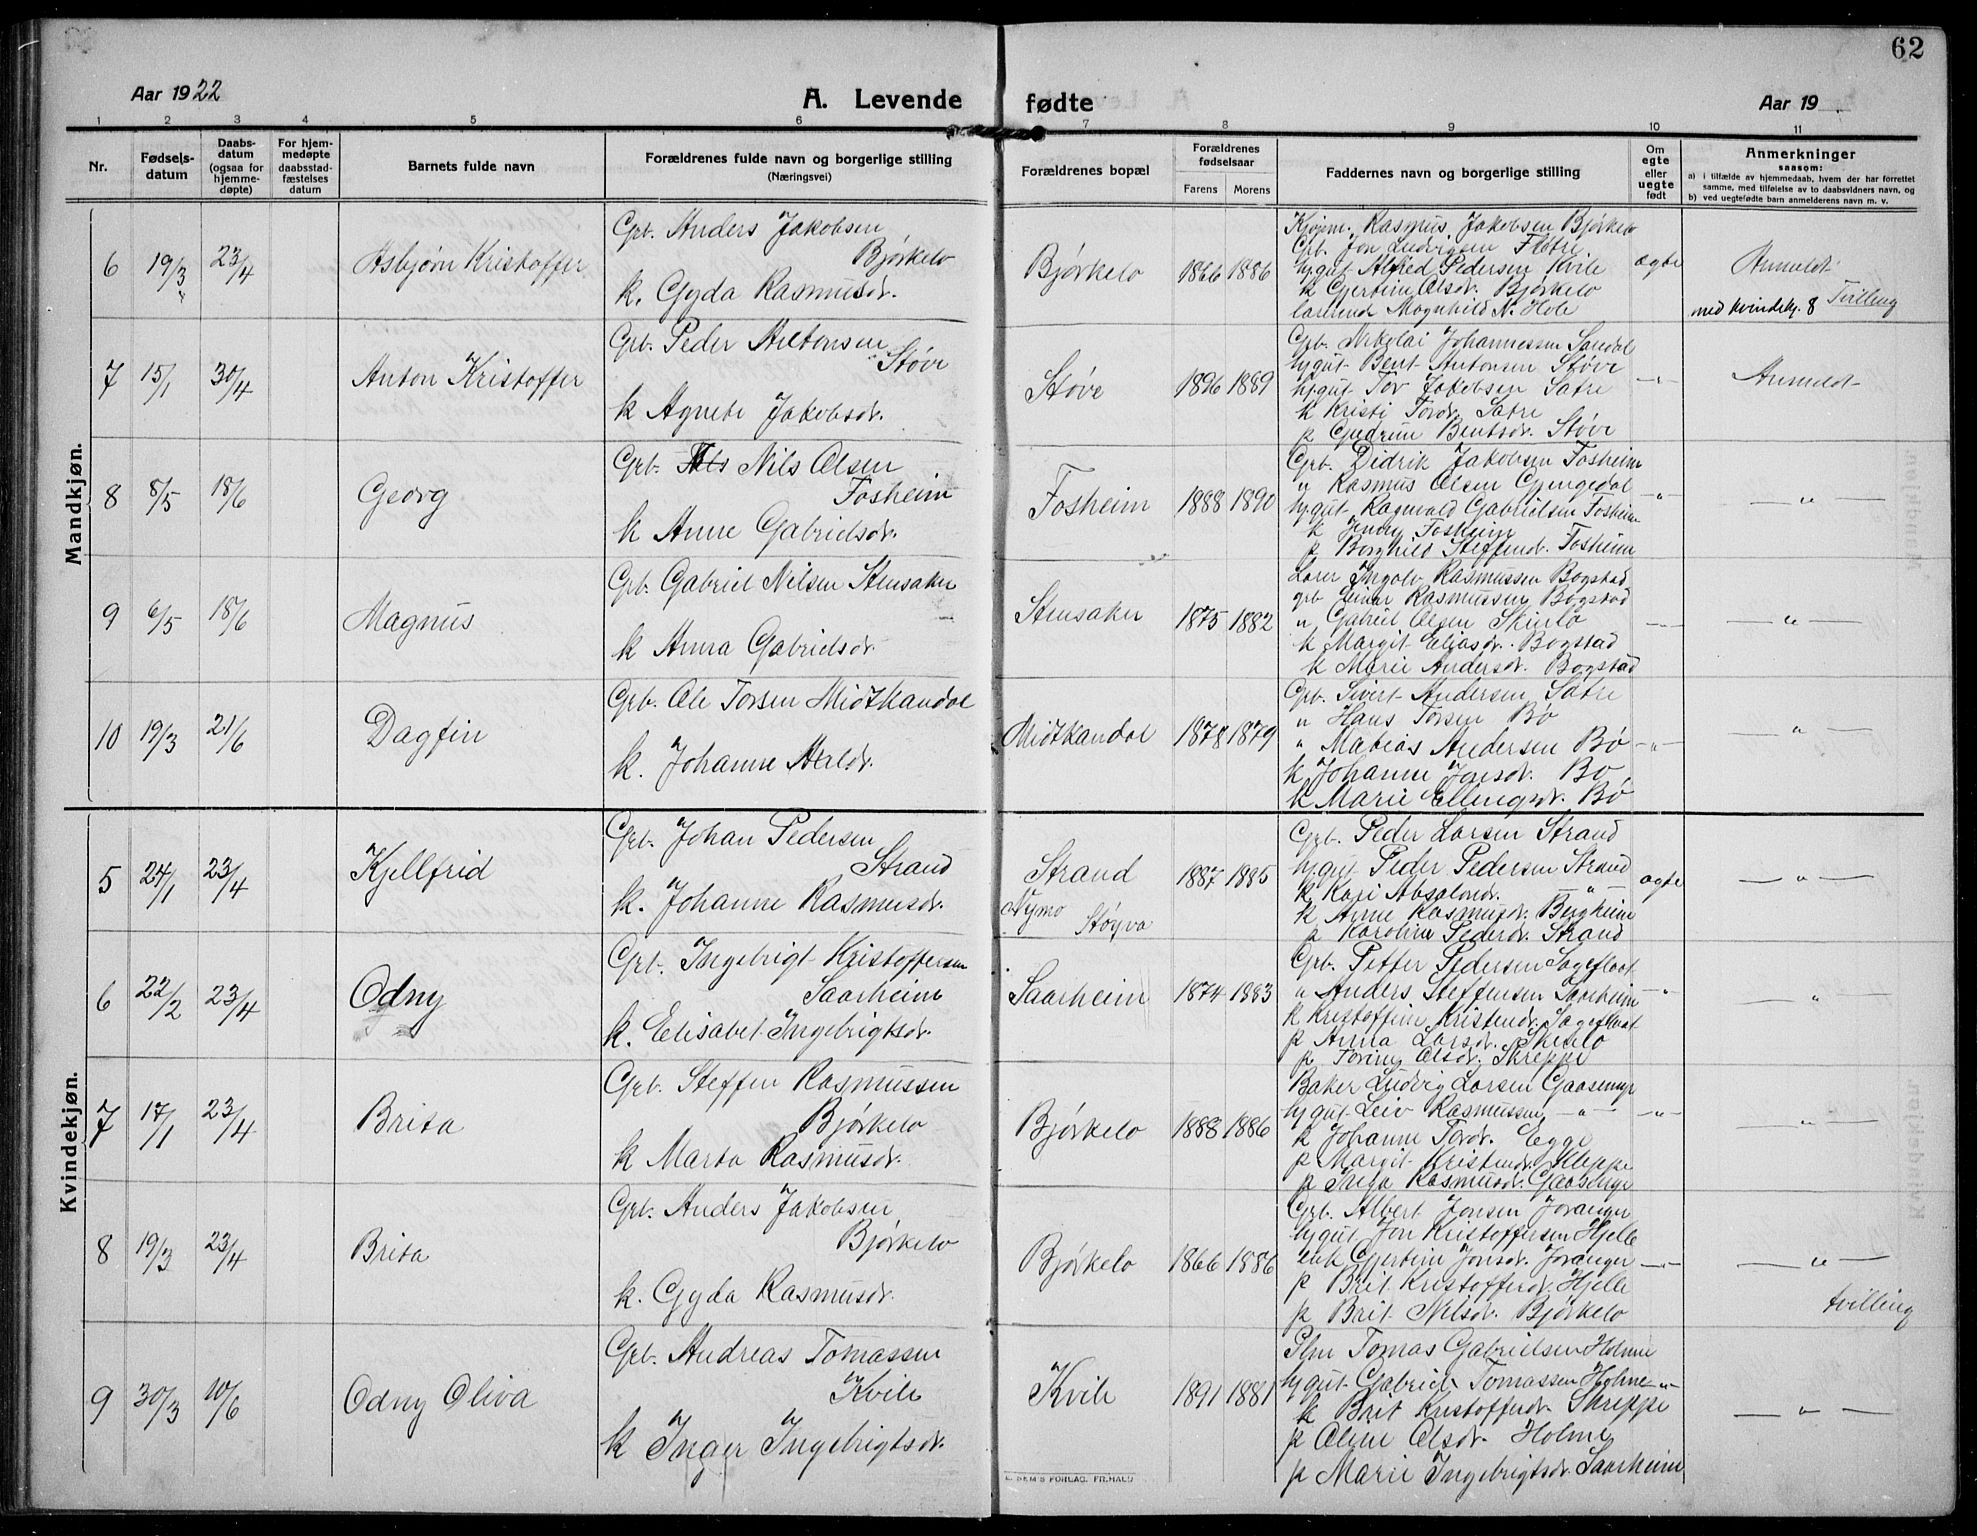 62
Aar 1922
A. Levende fødte
Aar 19
1 2 3 4 5 6 7 8 9 10 11
Nr.
Fødsels-datum
Daabs-datum (ogsaa for hjemme-døpte)
For hjem-medøpte daabsstad-fæstelses datum
Barnets fulde navn
Forældrenes fulde navn og borgerlige stilling (Næringsvei)
Forældrenes bopæl
Forældrenes fødselsaar
Farens Morens
Faddernes navn og borgerlige stilling
Om egte eller uegte født
Anmerkninger saasom:
a) i tilfælde av hjemmedaab, hvem der har forrettet samme, med tilføielse av to daabsvidners navn, og
b) ved uegtefødte barn anmelderens navn m. v.
Mandkjøn.
6 19/3 23/4 Asbjørn Kristoffer
Grb. Anders Jakobsen
Bjørkelo
k. Gyda Rasmusdr.
Bjørkelo 1866 1886
Rasmus Jakobsen Bjørkelo
Grb. Jon Ludvigsen Fløtre
ugut Alfred Pedersen Kvile
k Gjertine Olsdr. Bjørkelo
Magnhild N. Hole
ægte
Anmeldt
Tvilling
med kvindekj. 8
7 15/1 30/4 Anton Kristoffer
Grb. Peder Antonsen
Støve
k Agnete Jakobsdr.
Støve 1896 1889
Grb. Nikolai Johannessen Sandal
ugut Bent Antonsen Støve
ugut Tor Jakobsen Sætre
k Kristi Torsdr. Sætre
p Gudrun Bentsdr. Støve
-"-
Anmeldt
8 8/5 18/6 Georg
Grb. Nils Olsen
Fosheim
k Anne Gabrielsdr.
Fosheim 1888 1890
Grb. Didrik Jakobsen Fosheim
" Rasmus Olsen Gjengedal
ugut Ragnvald Gabrielsen Fosheim
k Jenny Fosheim
p Borghild Steffensdr. Fosheim
-"-
— " —
9 6/5 18/6 Magnus
Grb. Gabriel Nilsen Stensaker
k Anna Gabrielsdr.
Stensaker 1875 1882
Lærer Ingolv Rasmussen Bogstad
grb Einar Rasmussen Bogstad
" Gabriel Olsen Skinlo
k Margit Eliasdr. Bogstad
k Marie Andersdr. Bogstad
-"-
— " —
10 19/3 21/6 Dagfin
Grb. Ole Torsen Midtkandal
k. Johanne
Midtkandal 1878 1879
Grb. Sivert Andersen Sætre
" Hans Torsen Bø
" Matias Andersen Bø
k Johanne Jonsdr. Bø
k Marie Ellingsdr. Bø
-"-
— " —
Kvindekjøn.
5 24/1 23/4 Kjellfrid
Grb. Johan Pedersen
Strand
k. Johanne Rasmusdr.
Strand
Nymo Støyva
1887 1885
Grb. Peder Larsen Strand
ugut Peder Pedersen Strand
k Kari Absalondr. — " —
k Anne Rasmusdr. Bergheim
p Karoline Pedersdr. Strand
ægte
— " —
6 22/2 23/4 Odny
Grb. Ingebrigt Kristoffersen
Saarheim
k. Elisabet Ingebrigtsdr.
Saarheim 1874 1883
Grb. Petter Pedersen Sageflaat
" Anders Steffensen Saarheim
k Kristoffine Kristendr. Sageflaat
p Anna Larsdr. Skeislo
p Toriny Olsdr. Skreppe
-"-
"
7 17/1 23/4 Brita
Grb. Steffen Rasmussen
Bjørkelo
k Marta Rasmusdr.
Bjørkelo 1888 1886
Baker Ludvig Larsen Gaasemyr
ugut Leiv Rasmussen — " —
k Johanne Torsdr. Egge
p Margit Kristendr. Kleppe
p Inga Rasmusdr. Gaasemyr
-"-
— " —
8 19/3 23/4 Brita
Grb. Anders Jakobsen
Bjørkelo
k. Gyda Rasmusdr.
Bjørkelo 1866 1886
Grb. Albert Jonsen Joranger
ugut Jon Kristoffersen Hjelle
enk Gjertine Jonsdr. Joranger
p Brit Kristoffersdr. Hjelle
p Brit Nilsdr. Bjørkelo
-"-
— " —
tvilling
9 30/3 10/6 Odny Oliva
Grb. Andreas Tomassen
Kvile
k Inger Ingebrigtsdr.
Kvile 1891 1881
Tomas Gabrielsen Holme
ugut Gabriel Tomassen Holme
k Brit Kristoffersdr. Skreppe
p Oline Olsdr. Holme
p Marie Ingebrigtsdr. Saarheim
-"-
— " —
SEM'S FORLAG, FR.HALD